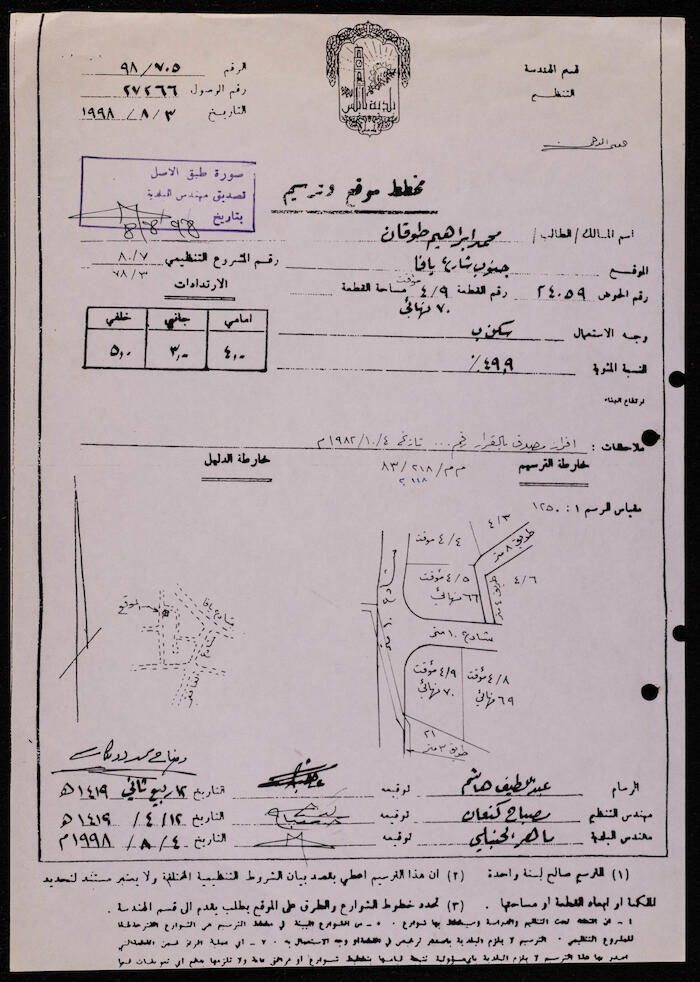 قسم الهندسة
التنظيم
الرقم ٩٨/٧٠٥
رقم الوصول ٢٧٢٦٦
التاريخ ٣ / ٨ / ١٩٩٨
بلدية نابلس
صورة طبق الاصل
تصديق مهندس البلدية
بتاريخ ٨/٨/٩٨
مخطط موقع وترسيم
اسم المالك / الطالب / محمد ابراهيم طوقان
الموقع جنوب شارع يافا رقم المشروع التنظيمي ٨٠/٧
٧٨/٣
رقم الحوض ٢٤٠٥٩ رقم القطعة ٤/٩ مؤقت مساحة القطعة
٧٠ نهائي
الارتدادات
امامي جانبي خلفي
٤,٠ ٣,٠ ٥,٠
وجه الاستعمال سكن ب
النسبة المئوية ٤٩,٩٪
ارتفاع البناء
ملاحظات : افراز مصدق بالقرار رقم ... تاريخ ١٩٨٢/١٠/٤م
م م/٢١٨/٨٣
خارطة الترسيم
خارطة الدليل
مقياس الرسم ١ : ١٢٥٠
٤/٣
طريق ٨ متر
٤/٤ مؤقت
٤/٥ مؤقت
٦٦ نهائي
٤/٦
طريق ٤ متر
شارع ١٠ متر
شارع ١٠ متر
٤/٩ مؤقت
٧٠ نهائي
٤/٨ مؤقت
٦٩ نهائي
٢١
طريق ٣ متر
الموقع
شارع يافا
شارع
الرسام عبد اللطيف هاشم توقيعه التاريخ ١٢ ربيع ثاني ١٤١٩ هـ
مهندس التنظيم مصباح كنعان توقيعه التاريخ ١٢ / ٤ / ١٤١٩ هـ
مهندس البلدية ماهر الحنبلي توقيعه التاريخ ٤ / ٨ / ١٩٩٨ م
(١) الترسيم صالح لسنة واحدة (٢) ان هذا الترسيم اعطي بقصد بيان الشروط التنظيمية المختلفة ولا يعتبر مستند لتحديد
الملكية او ابعاد القطعة او مساحتها . (٣) تحدد خطوط الشوارع والطرق على الموقع بطلب يقدم الى قسم الهندسة .